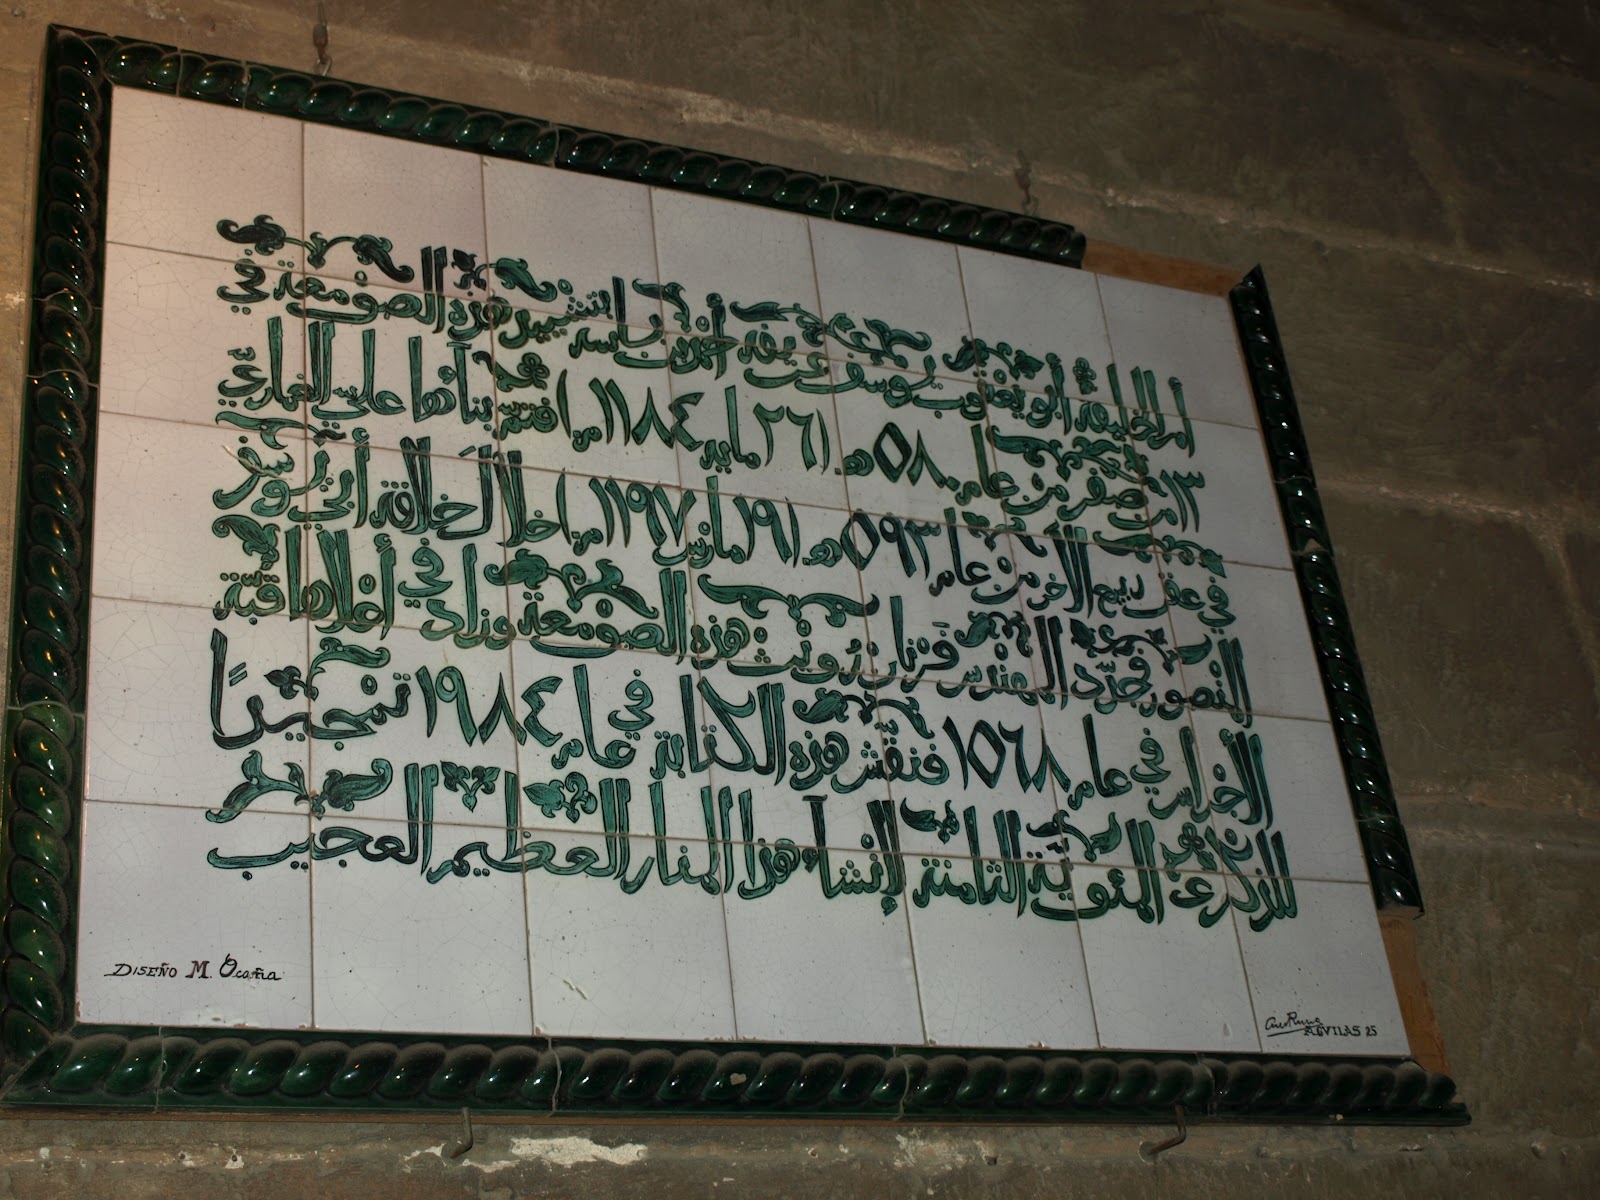 أمر الخليفة أبو يعقوب يوسف عريفه أحمد بن باسه بتشييد هذه الصومعة في
١٣ من صفر من عام ٥٨٠ هـ (٢٦ مايه ١١٨٤ م) فتمم بناءها علي الغماري
في عقب ربيع الآخر من عام ٥٩٣ هـ (١٩ مارس ١١٩٧ م) خلال خلافة أبي يوسف
المنصور فجدّد المهندس فرنان رويث هذه الصومعة وزاد في أعلاها قبّة
الأجراس في عام ١٥٦٨ فنقّش هذه الكتابة في عام ١٩٨٤ تسجيدًا
للذكرى المئويّة الثامنة لإنشاء هذا المنار العظيم العجيب
DISEÑO M. Ocaña
AGVILAS 25